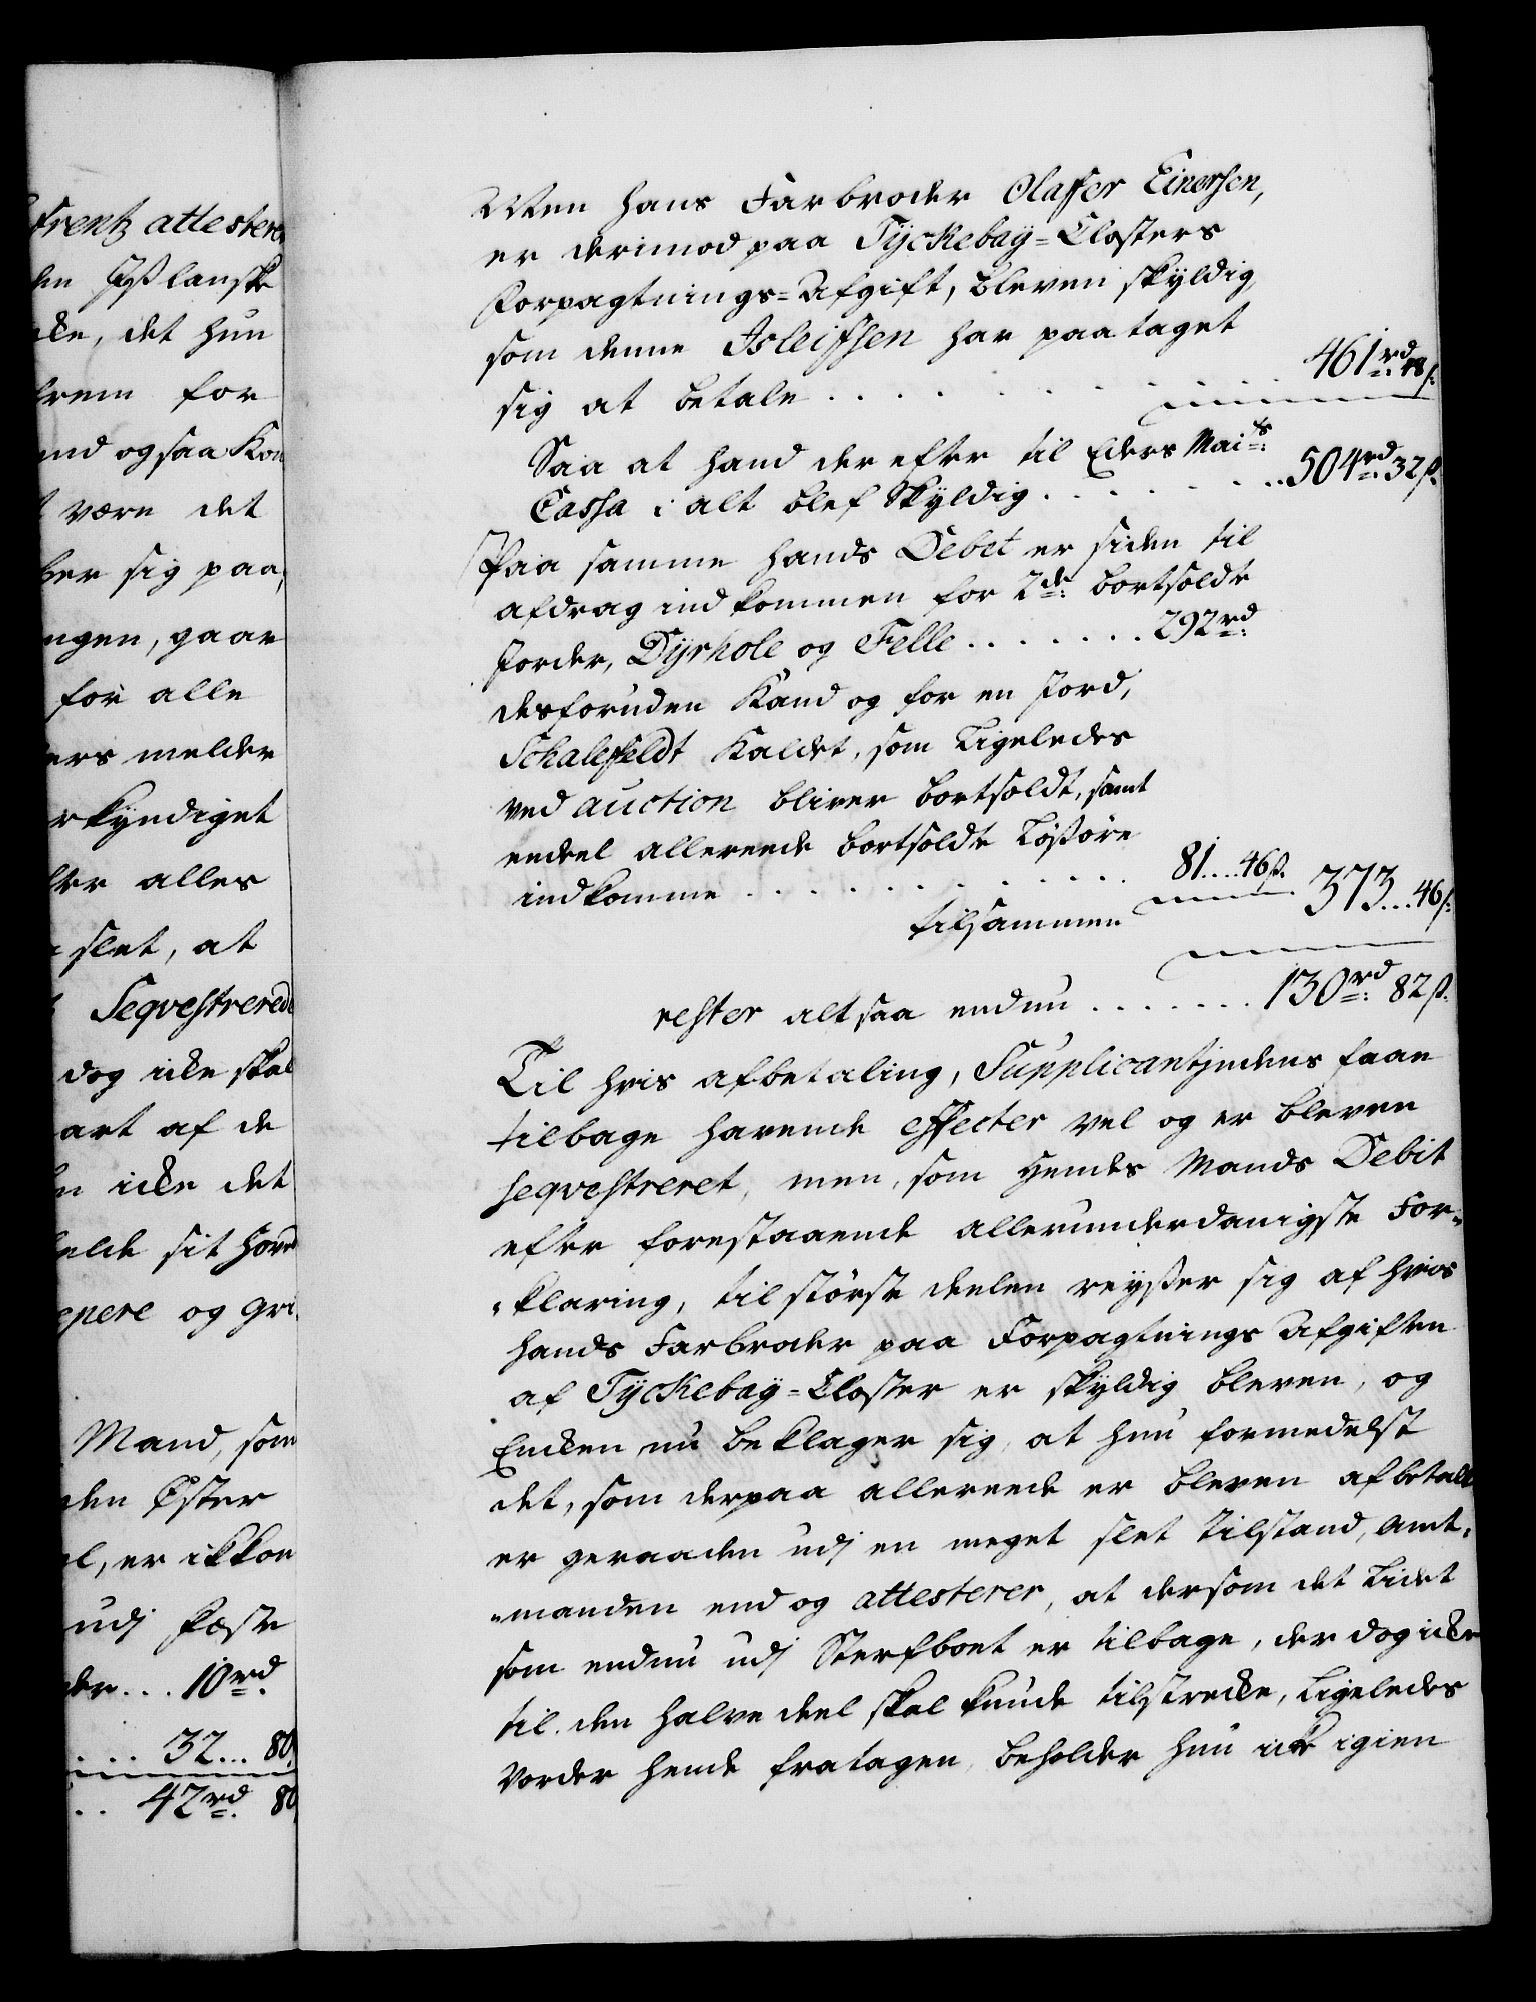 Frentz attestere
den Ißlanske
icke, det hun
frem for
end ogsaa Kon
være det
ber sig paa,
ingen, gaar
for alle
ers melder
rkyndiget
ter alles
slet, at
Seqvestrered
dog icke skal
art af de
n icke det
elde sit hoved
epere og gri
Mand, som
den Øster
el, er ikkon
udj Fæste
der... 10 rd.
.... 32... 80
.. 42 rd. 80
Men hans Farbroder Olaffer Einersen,
er derimod paa Tÿckebaÿ=Closters
Forpagtnings=Afgift, bleven skyldig,
som denne Isleiffsen har paataget
sig at betale . . . . . . . 461 rd. 48 ß.
Saa at hand derefter til Eders Maits:
Cassa i alt blef skyldig . . . . . . . 504 rd. 32 ß.
Paa samme hands Debet er siden til
afdrag indkommen for 2de: bortsoldte
Jorder, Dÿrhole og Felle . . . . . . . 292 rd.
desforuden Kand og for en Jord,
Schaleffeldt kaldet, som ligeledes
ved auction bliver bortsoldt, samt
endeel allereede bortsoldte Løsøre
indkomme . . . . . . . . . . 81.... 46 ß.
tilsammen 373... 46 ß.
rester altsaa endnu . . . . . . . 130 rd. 82 ß.
Til hvis afbetaling, Supplicantindens faae
tilbage havende effecter vel og er bleven
seqvestreret, men, som hendes Mands Debit
efter forestaaende allerunderdanigste For=
=klaring, til største deelen reyser sig af hvis
hands Farbroder paa Forpagtnings Afgiften
af Tÿckebaÿ=Closter er skyldig bleven, og
Encken nu beklager sig, at hun formedelst
det, som derpaa allereede er bleven afbetalt
er geraaden udj en meget slet tilstand, Amt=
=manden end og attesterer, at dersom det lidet
som endnu udj Sterfboet er tilbage, der dog icke
til den halve deel skal kunde tilstrecke, ligeledes
vorder hende fratagen, beholder hun icke igien